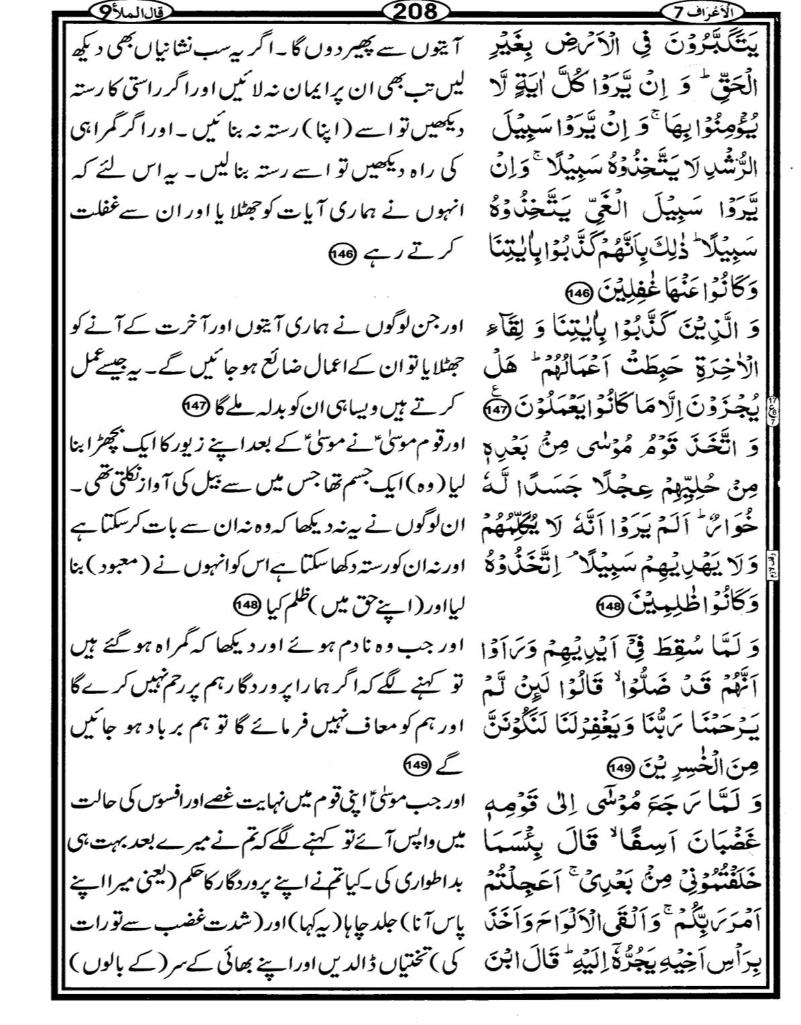 الاعراف 7
208
قال الملأ 9
يَتَكَبَّرُوۡنَ فِى الۡاَرۡضِ بِغَيۡرِ
الۡحَقِّ ؕ وَ اِنۡ يَّرَوۡا كُلَّ اٰيَةٍ لَّا
يُؤۡمِنُوۡا بِهَا ۚ وَ اِنۡ يَّرَوۡا سَبِيۡلَ
الرُّشۡدِ لَا يَتَّخِذُوۡهُ سَبِيۡلًا ۚ وَاِنۡ
يَّرَوۡا سَبِيۡلَ الۡغَىِّ يَتَّخِذُوۡهُ
سَبِيۡلًا ؕ ذٰلِكَ بِاَنَّهُمۡ كَذَّبُوۡا بِاٰيٰتِنَا
وَكَانُوۡا عَنۡهَا غٰفِلِيۡنَ 146
وَ الَّذِيۡنَ كَذَّبُوۡا بِاٰيٰتِنَا وَ لِقَآءِ
الۡاٰخِرَةِ حَبِطَتۡ اَعۡمَالُهُمۡ ؕ هَلۡ
يُجۡزَوۡنَ اِلَّا مَا كَانُوۡا يَعۡمَلُوۡنَ 147
وَ اتَّخَذَ قَوۡمُ مُوۡسٰى مِنۡۢ بَعۡدِهٖ
مِنۡ حُلِيِّهِمۡ عِجۡلًا جَسَدًا لَّهٗ
خُوَارٌ ؕ اَلَمۡ يَرَوۡا اَنَّهٗ لَا يُكَلِّمُهُمۡ
وَلَا يَهۡدِيۡهِمۡ سَبِيۡلًا ۘ اِتَّخَذُوۡهُ
وَكَانُوۡا ظٰلِمِيۡنَ 148
وَ لَمَّا سُقِطَ فِىۡۤ اَيۡدِيۡهِمۡ وَرَاَوۡا
اَنَّهُمۡ قَدۡ ضَلُّوۡا ۙ قَالُوۡا لَئِنۡ لَّمۡ
يَرۡحَمۡنَا رَبُّنَا وَيَغۡفِرۡ لَنَا لَنَكُوۡنَنَّ
مِنَ الۡخٰسِرِيۡنَ 149
وَ لَمَّا رَجَعَ مُوۡسٰٓى اِلٰى قَوۡمِهٖ
غَضۡبَانَ اَسِفًا ۙ قَالَ بِئۡسَمَا
خَلَفۡتُمُوۡنِىۡ مِنۡۢ بَعۡدِىۡ ۚ اَعَجِلۡتُمۡ
اَمۡرَ رَبِّكُمۡ ۚ وَاَلۡقَى الۡاَلۡوَاحَ وَاَخَذَ
بِرَاۡسِ اَخِيۡهِ يَجُرُّهٗۤ اِلَيۡهِ ؕ قَالَ ابۡنَ
آیتوں سے پھیر دوں گا۔ اگر یہ سب نشانیاں بھی دیکھ
لیں تب بھی ان پر ایمان نہ لائیں اور اگر راستی کا رستہ
دیکھیں تو اسے (اپنا) رستہ نہ بنائیں۔ اور اگر گمراہی
کی راہ دیکھیں تو اسے رستہ بنا لیں۔ یہ اس لئے کہ
انہوں نے ہماری آیات کو جھٹلایا اور ان سے غفلت
کرتے رہے 146
اور جن لوگوں نے ہماری آیتوں اور آخرت کے آنے کو
جھٹلایا تو ان کے اعمال ضائع ہو جائیں گے۔ یہ جیسے عمل
کرتے ہیں ویسا ہی ان کو بدلہ ملے گا 147
اور قوم موسیٰؑ نے موسیٰؑ کے بعد اپنے زیور کا ایک بچھڑا بنا
لیا (وہ) ایک جسم تھا جس میں سے بیل کی آواز نکلتی تھی۔
ان لوگوں نے یہ نہ دیکھا کہ وہ نہ ان سے بات کر سکتا ہے
اور نہ ان کو رستہ دکھا سکتا ہے اس کو انہوں نے (معبود) بنا
لیا اور (اپنے حق میں) ظلم کیا 148
اور جب وہ نادم ہوئے اور دیکھا کہ گمراہ ہو گئے ہیں
تو کہنے لگے کہ اگر ہمارا پروردگار ہم پر رحم نہیں کرے گا
اور ہم کو معاف نہیں فرمائے گا تو ہم برباد ہو جائیں
گے 149
اور جب موسیٰؑ اپنی قوم میں نہایت غصے اور افسوس کی حالت
میں واپس آئے تو کہنے لگے کہ تم نے میرے بعد بہت ہی
بداطواری کی۔ کیا تم نے اپنے پروردگار کا حکم (یعنی میرا اپنے
پاس آنا) جلد چاہا (یہ کہا) اور (شدت غضب سے تورات
کی) تختیاں ڈال دیں اور اپنے بھائی کے سر (کے بالوں)
وقف لازم